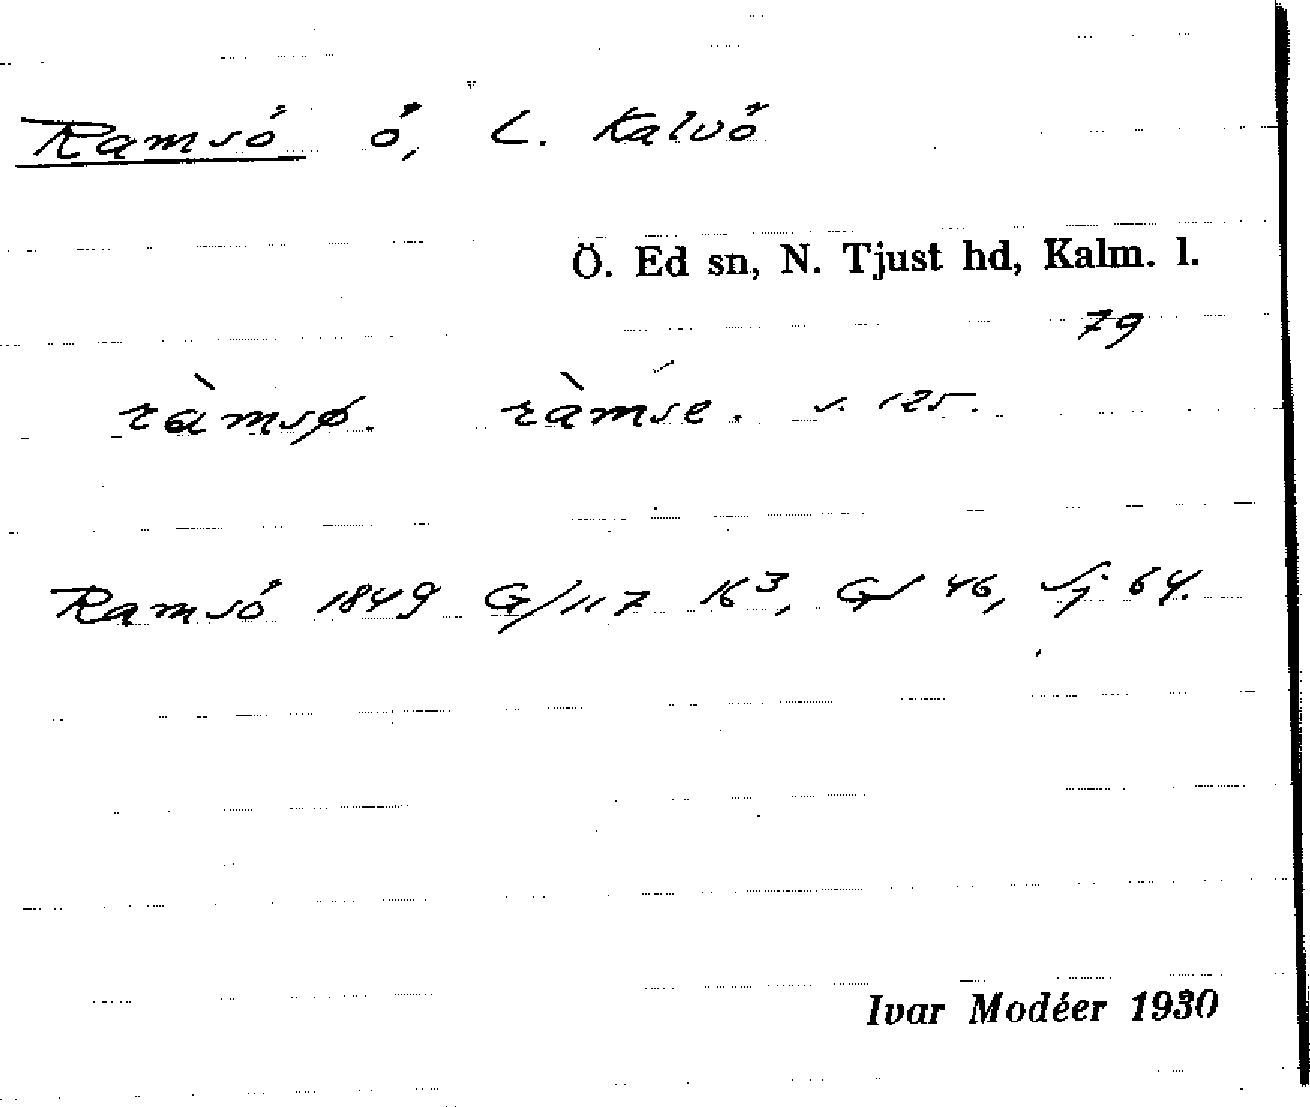 Ramsö ö, L. Kalvö
Ö. Ed sn, N. Tjust hd, Kalm. l.
79
ràmsø. ràmse. s. 125.
Ramsö 1849 G/117 16³, GS 46, Sj 64.
Ivar Modéer 1930